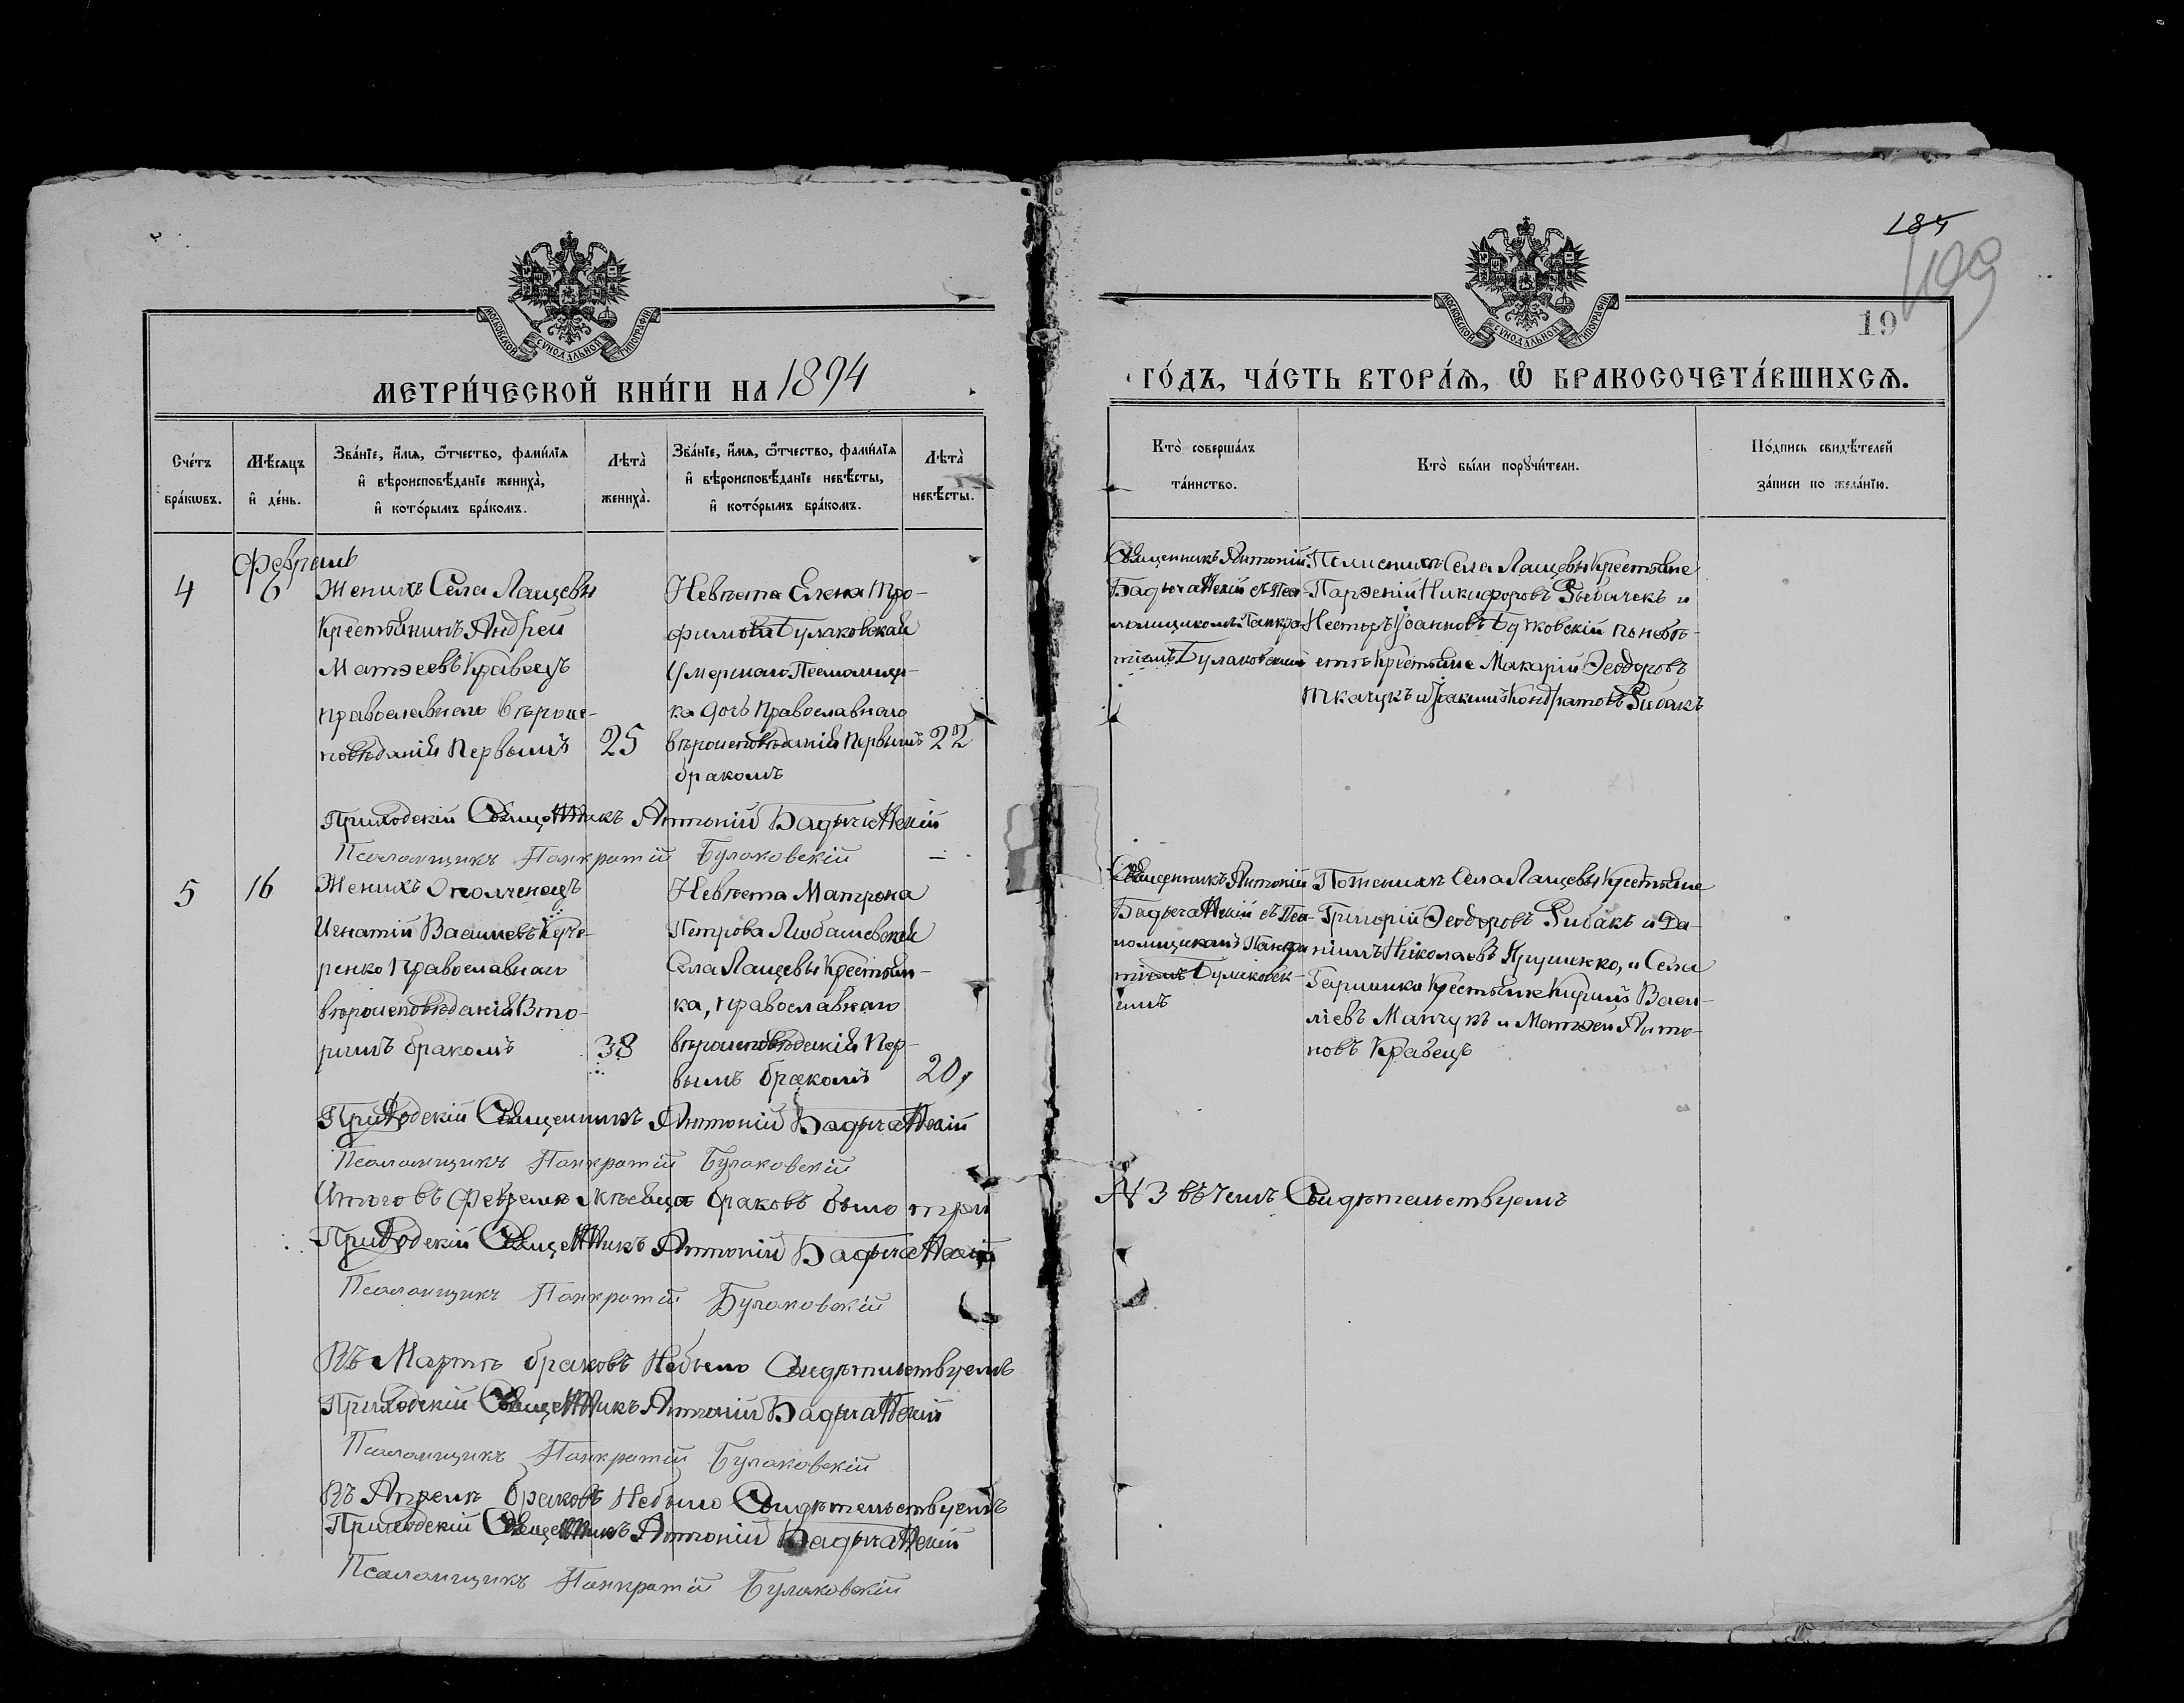 184
199
19
МОСКОВСКОЙ СѴНОДАЛЬНОЙ ТИПОГРАФІИ
МОСКОВСКОЙ СѴНОДАЛЬНОЙ ТИПОГРАФІИ
МЕТРИ́ЧЕСКОЙ КНИ́ГИ НА 1894
ГО́ДЪ, ЧА́СТЬ ВТОРА́Ѧ, Ѡ҆ БРАКОСОЧЕТА́ВШИХСѦ.
Сче́тъ
бра́кѡвъ.
Мѣ́сяцъ
и҆ де́нь.
Зва́нїе, и҆́мѧ, ѻ҆́тчество, фами́лїѧ
и҆ вѣроисповѣ́данїе жениха̀,
и҆ кото́рымъ бра́комъ.
Лѣта̀
жениха̀.
Зва́нїе, и҆́мѧ, ѻ҆́тчество, фами́лїѧ
и҆ вѣроисповѣ́данїе невѣ́сты,
и҆ кото́рымъ бра́комъ.
Лѣта̀
невѣ́сты.
Кто̀ соверша́лъ
та́инство.
Кто̀ бы́ли порꙋчи́тели.
По́дпись свидѣ́телей
за́писи по жела́нїю.
Февраль
4
6
Женихъ Села Лащевы
Крестьянинъ Андрей
Матѳеевъ Кравецъ
православнаго вѣроис-
повѣданія Первымъ
25
Невѣста Елена Тро-
фимова Булаковская
Умершаго Псаломщи-
ка дочь православнаго
вѣроисповѣданія Первымъ
бракомъ
22
Священникъ Антоній
съ Пса-
ломщикомъ Панкра-
тіемъ Булаковскимъ
По женихѣ Села Лащевы Крестьяне
Парѳеній Никифоровъ и
Несторъ Іоанновъ Бутковскій по невѣ-
стѣ Крестьяне Макарій Ѳеодоровъ
Ткачукъ и Іоакимъ Кондратовъ Рибакъ
Приходскій Священникъ Антоній
Псаломщикъ Панкратій Булаковскій
5
16
Женихъ Ополченецъ
Игнатій Васильевъ Куче-
ренко Православнаго
вѣроисповѣданія Вто-
рымъ бракомъ
38
Невѣста Матрона
Петрова Любашевская
Села Лащевы Крестьян-
ка, православнаго
вѣроисповѣданія Пер-
вымъ бракомъ
20,
Священникъ Антоній
съ Пса-
ломщикомъ Панкра
тіемъ Булаковск-
имъ
По женихѣ Села Лащевы Крестьяне
Григорій Ѳеодоровъ Рибакъ и Да-
ніилъ Николаевъ и Села
Крестьяне Кирилъ Васи-
ліевъ Манчукъ и Матѳей Анто-
новъ Кравецъ
Приходскій Священникъ Антоній
Псаломщикъ Панкратій Булаковскій
Итого въ Февралѣ мѣсяцѣ браковъ было три
№ 3 въ чемъ Свидѣтельствуемъ
Приходскій Священникъ Антоній
Псаломщикъ Панкратій Булаковскій
Въ Мартѣ браковъ Небыло Свидѣтельствуемъ
Приходскій Священникъ Антоній
Псаломщикъ Панкратій Булаковскій
Въ Апрелѣ браковъ Небыло Свидѣтельствуемъ
Приходскій Священникъ Антоній
Псаломщикъ Панкратій Булаковскій